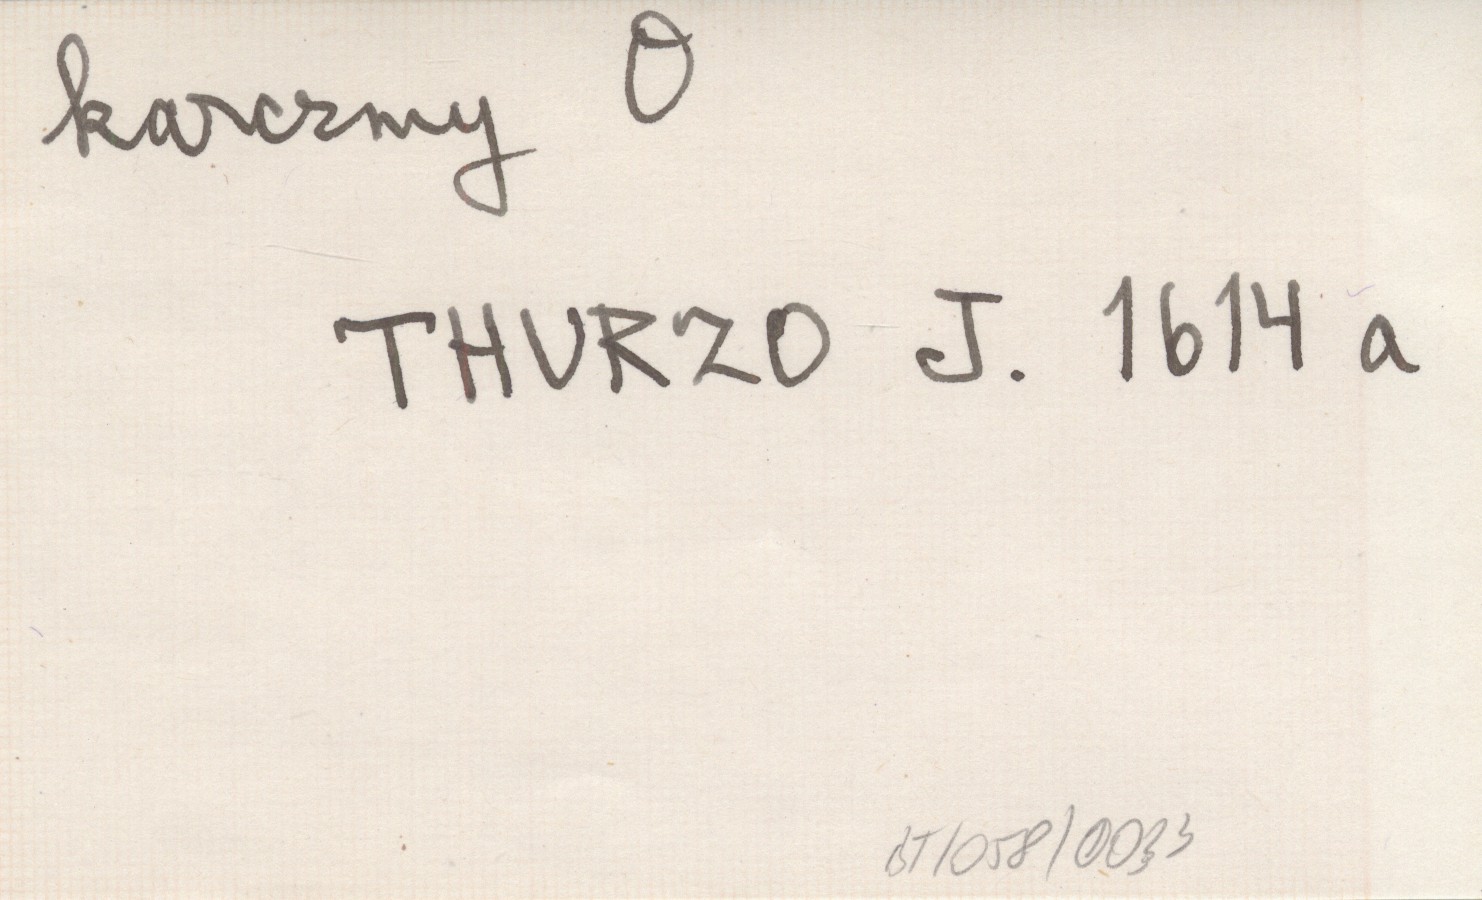 karczmy O
THURZO J. 1614 a
BT/058/0033